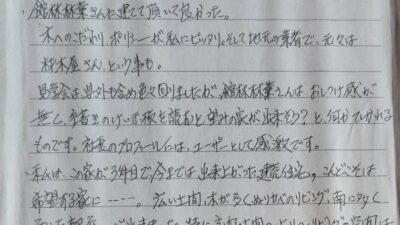 ・館林林業さんに建てて頂いて良かった。
木へのこだわり、ポリシーが私にピッタリ。そして地元の業者で、元々は
材木屋さん、という事も。
見学会は県外も含め色々回りましたが、館林林業さんは おしつけ感が
無て、手書きのけいじ板を読むと望みの家が出来そう?と、何かひかれる
ものです。社長のプロフィールは、ユーザーとして感激です。
・私は、この家が3軒目で、今までは出来上がった建売住宅。こんどこそは
希望する家に----。広い土間、木が多くぬりかべのリビング、南に多く